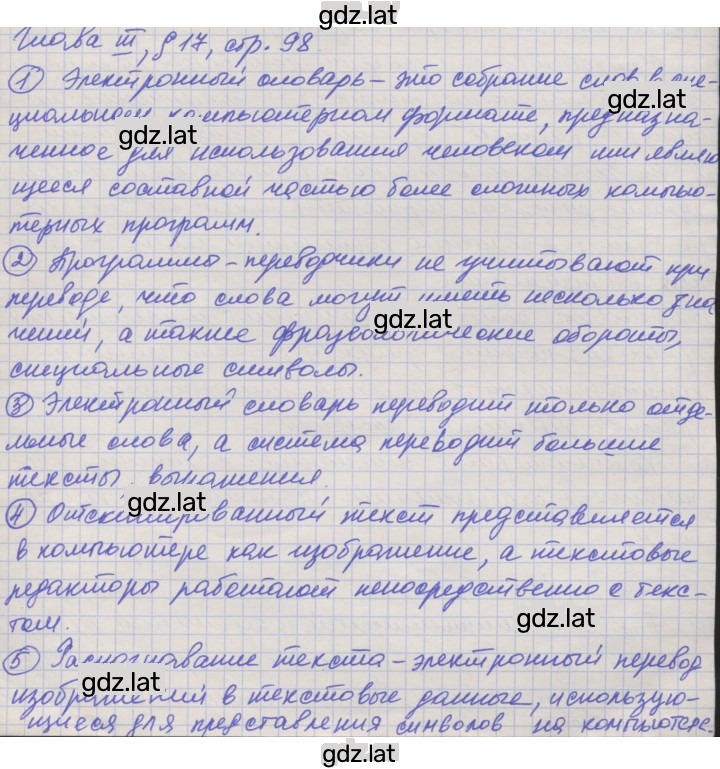 gdz.lat
Глава III, §17, стр. 98
① Электронный словарь – это собрание слов в спе-
gdz.lat
циальном компьютерном формате, предназна-
gdz.lat
ченное для использования человеком или являю
щееся составной частью более сложных компью-
терных программ.
② Программы-переводчики не учитывают при
переводе, что слова могут иметь несколько зна
gdz.lat
чений, а также фразеологические обороты,
специальные символы.
③ Электронный словарь переводит только отде-
льные слова, а система переводит большие
тексты
gdz.lat
④ Отсканированный текст представляется
в компьютере как изображение, а текстовые
редакторы работают непосредственно с текс-
gdz.lat
том.
⑤ Распознавание текста – электронный перевод
gdz.lat
изображений в текстовые данные, использую-
щиеся для представления символов на компьютере.
gdz.lat